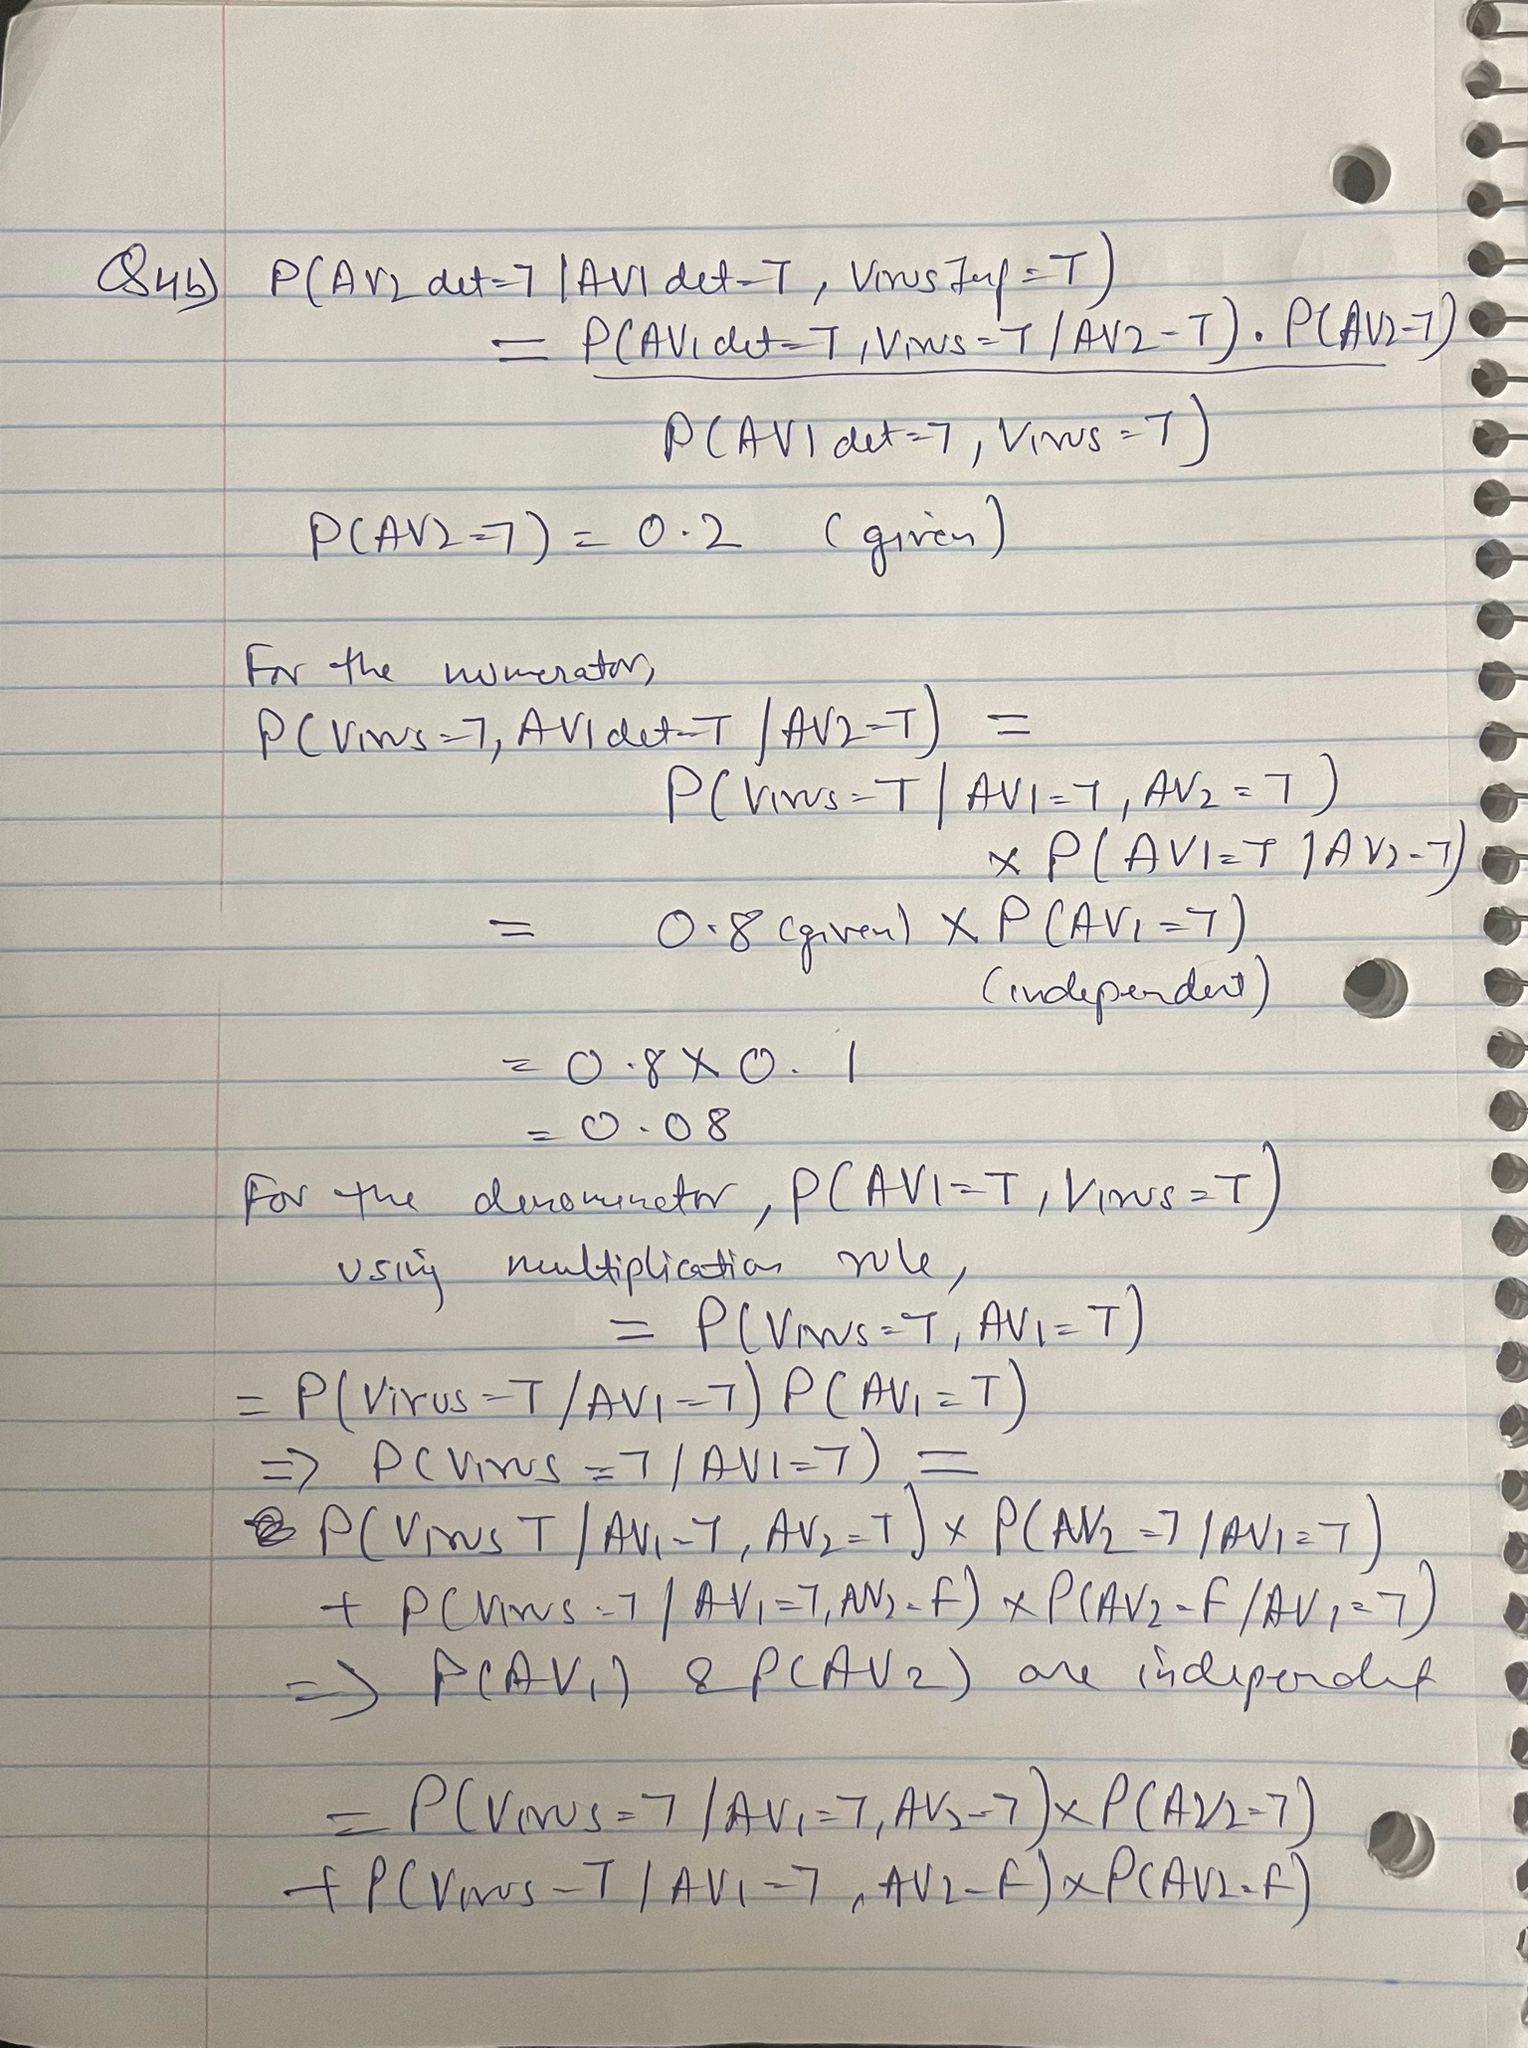 Q4b) P(AV2 det=T | AV1 det=T, Virus Inf=T)
= P(AV1 det=T, Virus=T / AV2=T). P(AV2=T)
P(AV1 det=T, Virus=T)
P(AV2=T) = 0.2 (given)
For the numerator,
P(Virus=T, AV1det=T / AV2=T) =
P(Virus=T | AV1=T, AV2=T)
x P(AV1=T | AV2=T)
= 0.8 (given) X P(AV1=T)
(independent)
= 0.8 X 0.1
= 0.08
For the denominator, P(AV1=T, Virus=T)
using multiplication rule,
= P(Virus=T, AV1=T)
= P(Virus=T / AV1=T) P(AV1=T)
=> P(Virus=T / AV1=T) =
P(Virus T / AV1=T, AV2=T) x P(AV2=T / AV1=T)
+ P(Virus=T / AV1=T, AV2=F) x P(AV2=F / AV1=T)
=> P(AV1) & P(AV2) are independent
= P(Virus=T / AV1=T, AV2=T) x P(AV2=T)
+ P(Virus=T / AV1=T, AV2=F) x P(AV2=F)